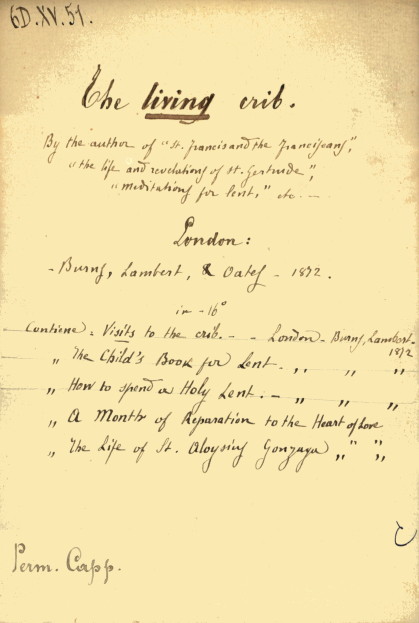 6D.XV.51.
The living crib.
By the author of "St. Francis and the Franciscans",
"the life and revelations of St. Gertrude",
"meditations for lent," etc. —
London:
- Burns, Lambert, & Oates - 1872.
in - 16°
Contiene: Visits to the crib. - - London - Burns, Lambert -
1872
" The Child's Book for Lent. " " "
" How to spend a Holy Lent. - " " "
" A Month of Reparation to the Heart of Love
" The Life of St. Aloysius Gonzaga " " "
Perm. Capp.